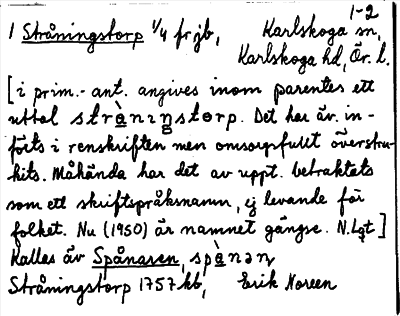 1-2
1 Stråningstorp 1/4 fr jb, Karlskoga sn,
Karlskoga hd, Ör. l.
[i prim.-ant. angives inom parentes ett
uttal stràni̥ŋstorp. Det har äv. in-
förts i renskriften men omsorgsfullt överstru-
kits. Måhända har det av uppt. betraktats
som ett skriftspråksnamn, ej levande för
folket. Nu (1950) är namnet gängse. N.Lqt]
Kallas äv Spånaren, spànan
Stråningstorp 1757 kb, Erik Noreen